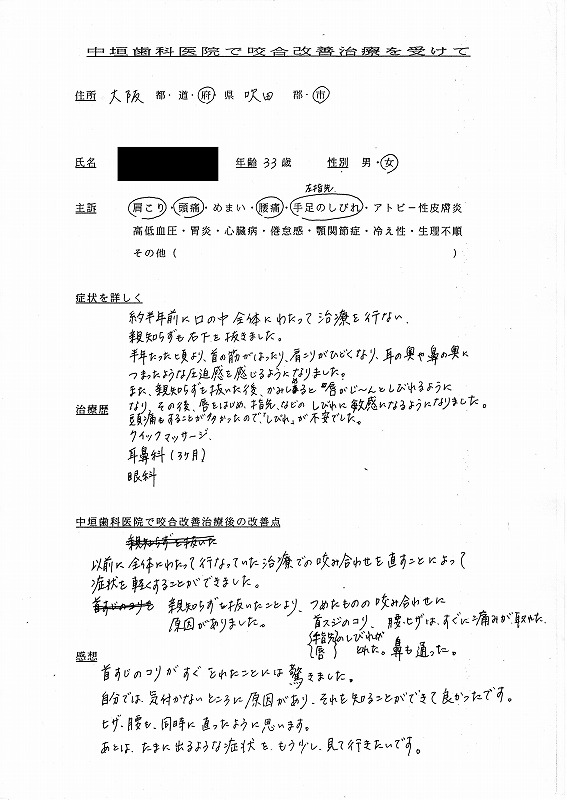 中垣歯科医院で咬合改善治療を受けて
住所 大阪 都・道・府・県 吹田 郡・市
氏名 年齢 33歳 性別 男・女
左指先
主訴 肩こり・頭痛・めまい・腰痛・手足のしびれ・アトピー性皮膚炎
高低血圧・胃炎・心臓病・倦怠感・顎関節症・冷え性・生理不順
その他( )
症状を詳しく
約半年前に口の中全体にわたって治療を行ない、
親知らずも右下を抜きました。
半年たった頃より、首の筋がはったり、肩こりがひどくなり、耳の奥や鼻の奥に
つまったような圧迫感を感じるようになりました。
また、親知らずを抜いた後、かみしめると唇がじ〜んとしびれるように
なり、その後、唇をはじめ、指先、などのしびれに敏感になるようになりました。
頭痛もすることが多かったので、「しびれ」が不安でした。
治療歴
クイックマッサージ、
耳鼻科(3ヶ月)
眼科
中垣歯科医院で咬合改善治療後の改善点
親知らずを抜いた
以前に全体にわたって行なっていた治療での咬み合わせを直すことによって
症状を軽くすることができました。
首すじのコリも 親知らずを抜いたことより、つめたものの咬み合わせに
原因がありました。
首スジのコリ、腰、ヒザは、すぐに痛みが取れた。
手指先 唇 のしびれがとれた。鼻も通った。
感想
首すじのコリがすぐとれたことには驚きました。
自分では、気付かないところに原因があり、それを知ることができて良かったです。
ヒザ、腰も、同時に直ったように思います。
あとは、たまに出るような症状を、もう少し、見て行きたいです。